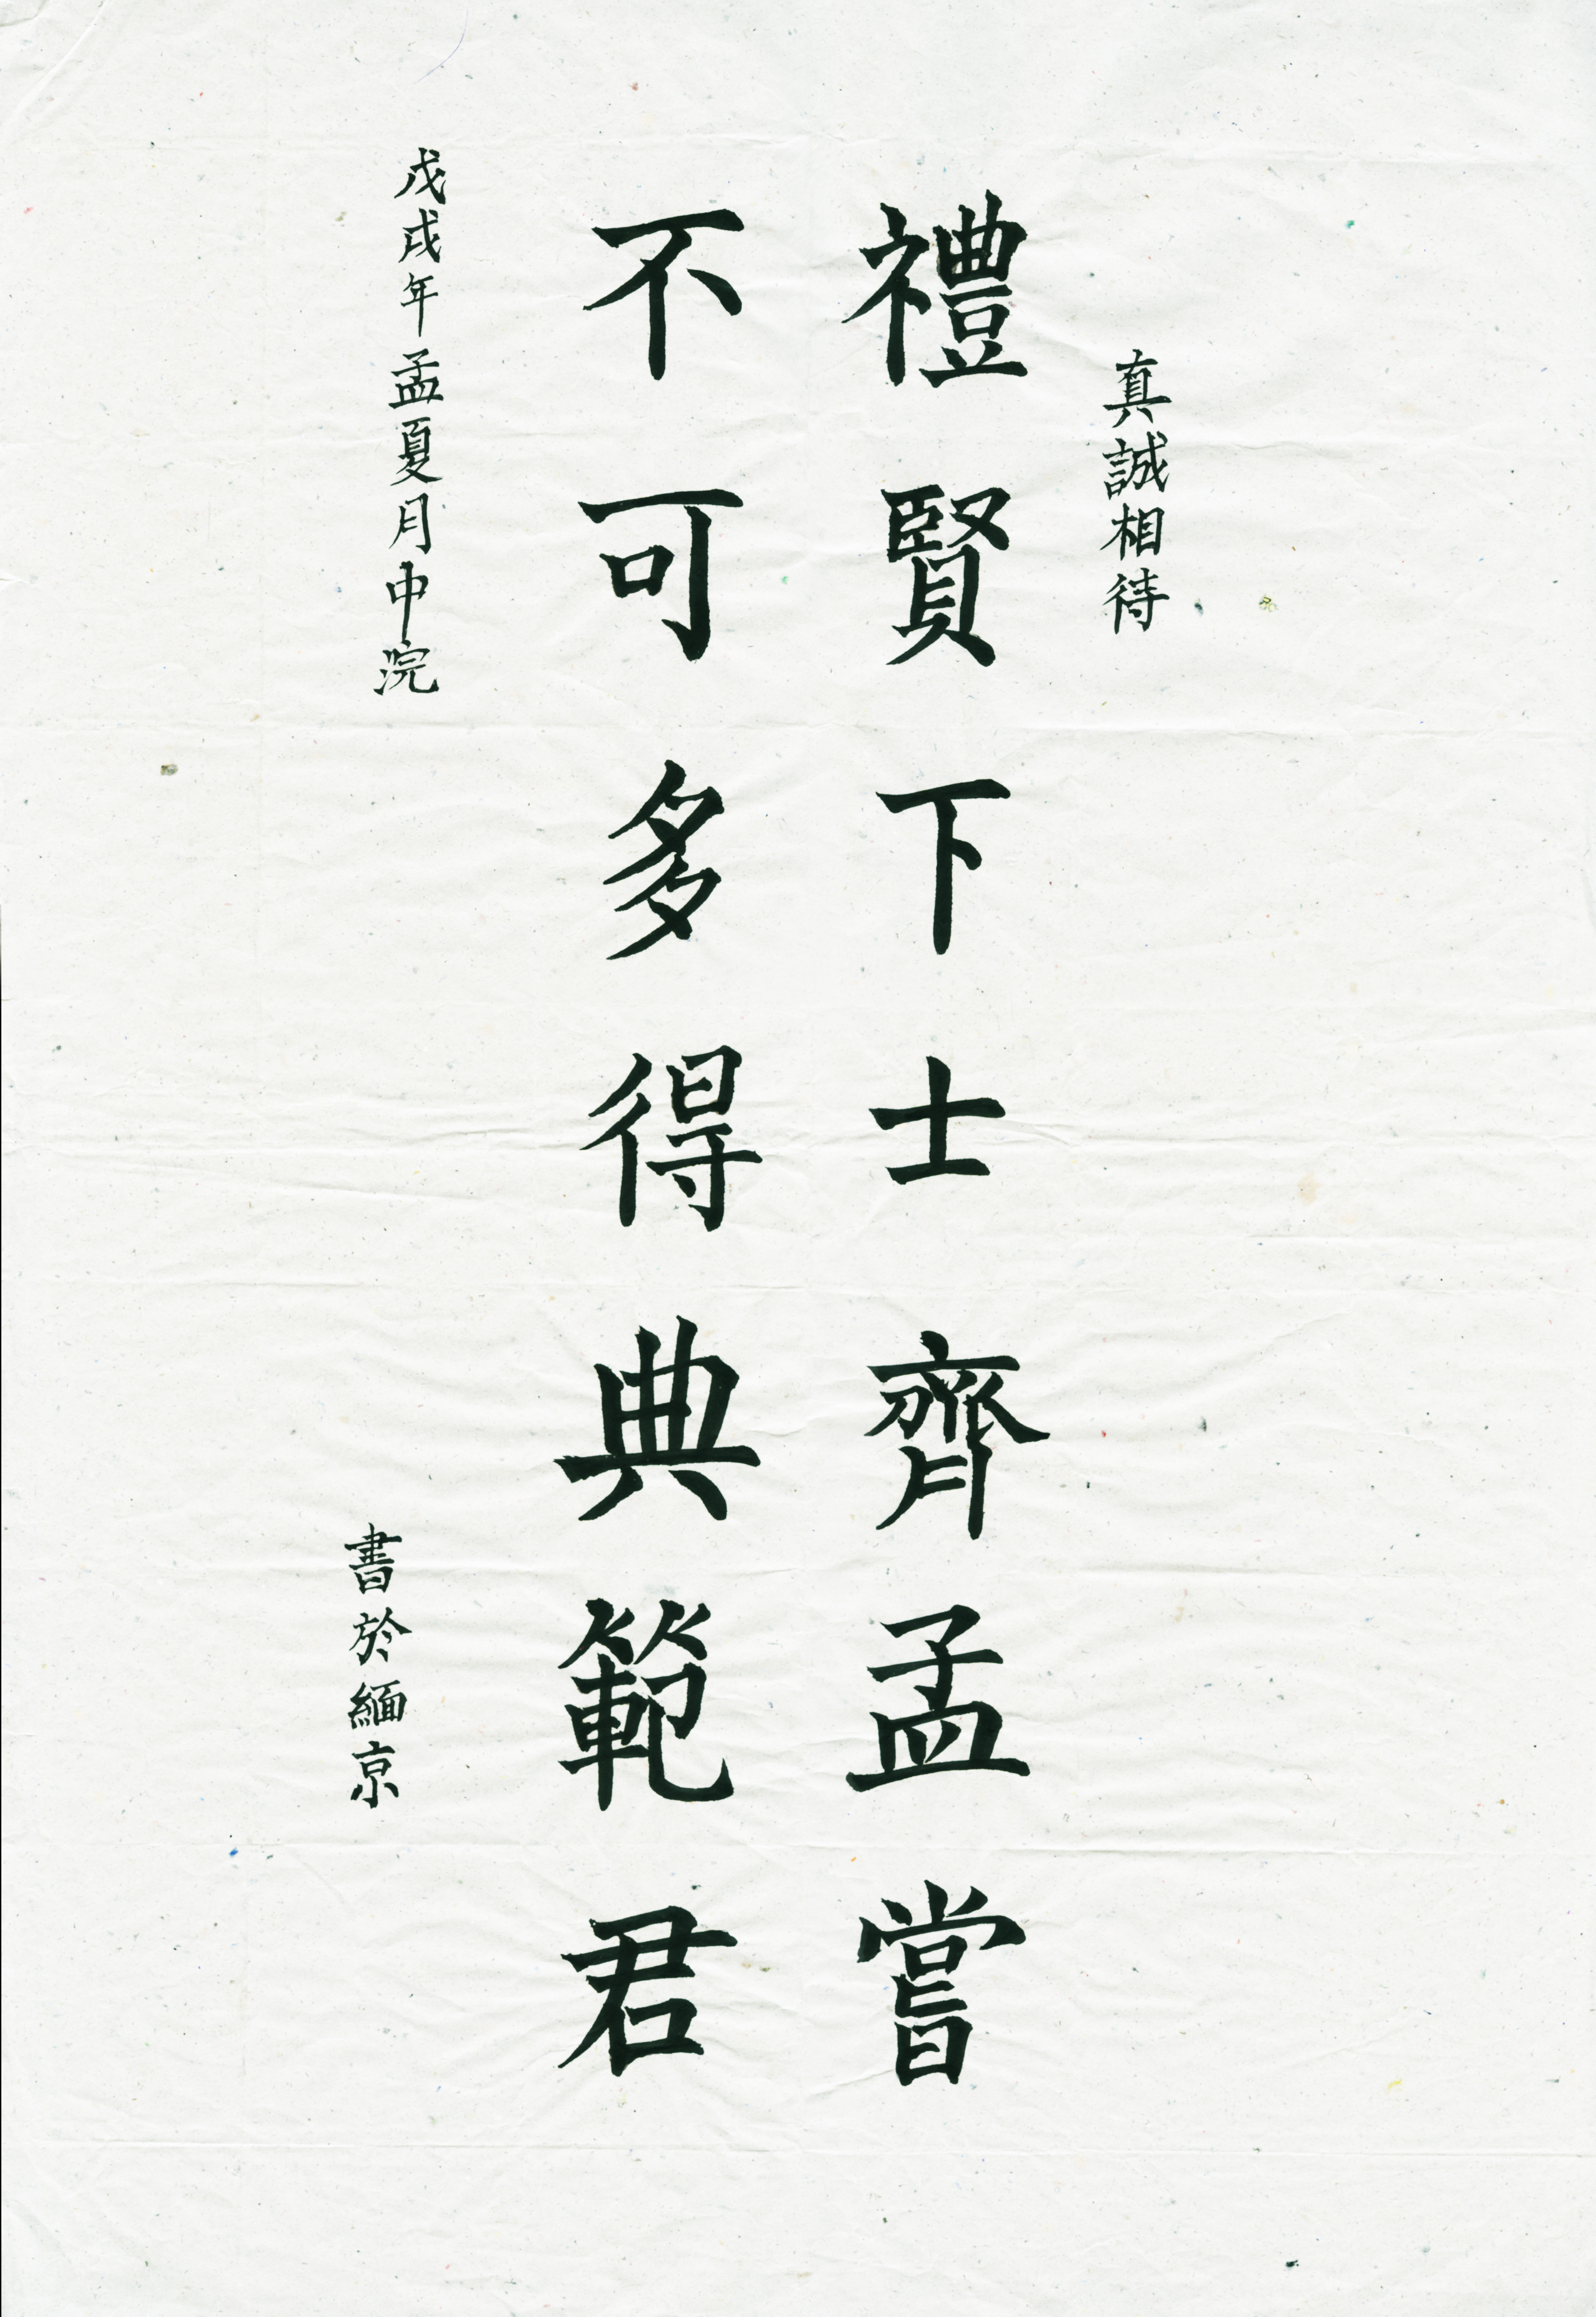 真誠相待
禮賢下士齊孟嘗
不可多得典範君
戊戌年孟夏月中浣
書於緬京